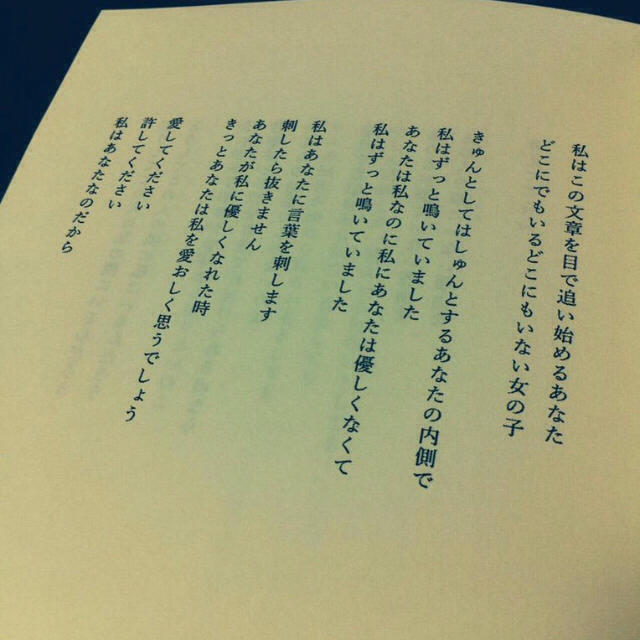 私はこの文章を目で追い始めるあなた
どこにでもいるどこにもいない女の子
きゅんとしてはしゅんとするあなたの内側で
私はずっと鳴いていました
あなたは私なのに私にあなたは優しくなくて
私はずっと鳴いていました
私はあなたに言葉を刺します
刺したら抜きません
あなたが私に優しくなれた時
きっとあなたは私を愛おしく思うでしょう
愛してください
許してください
私はあなたなのだから